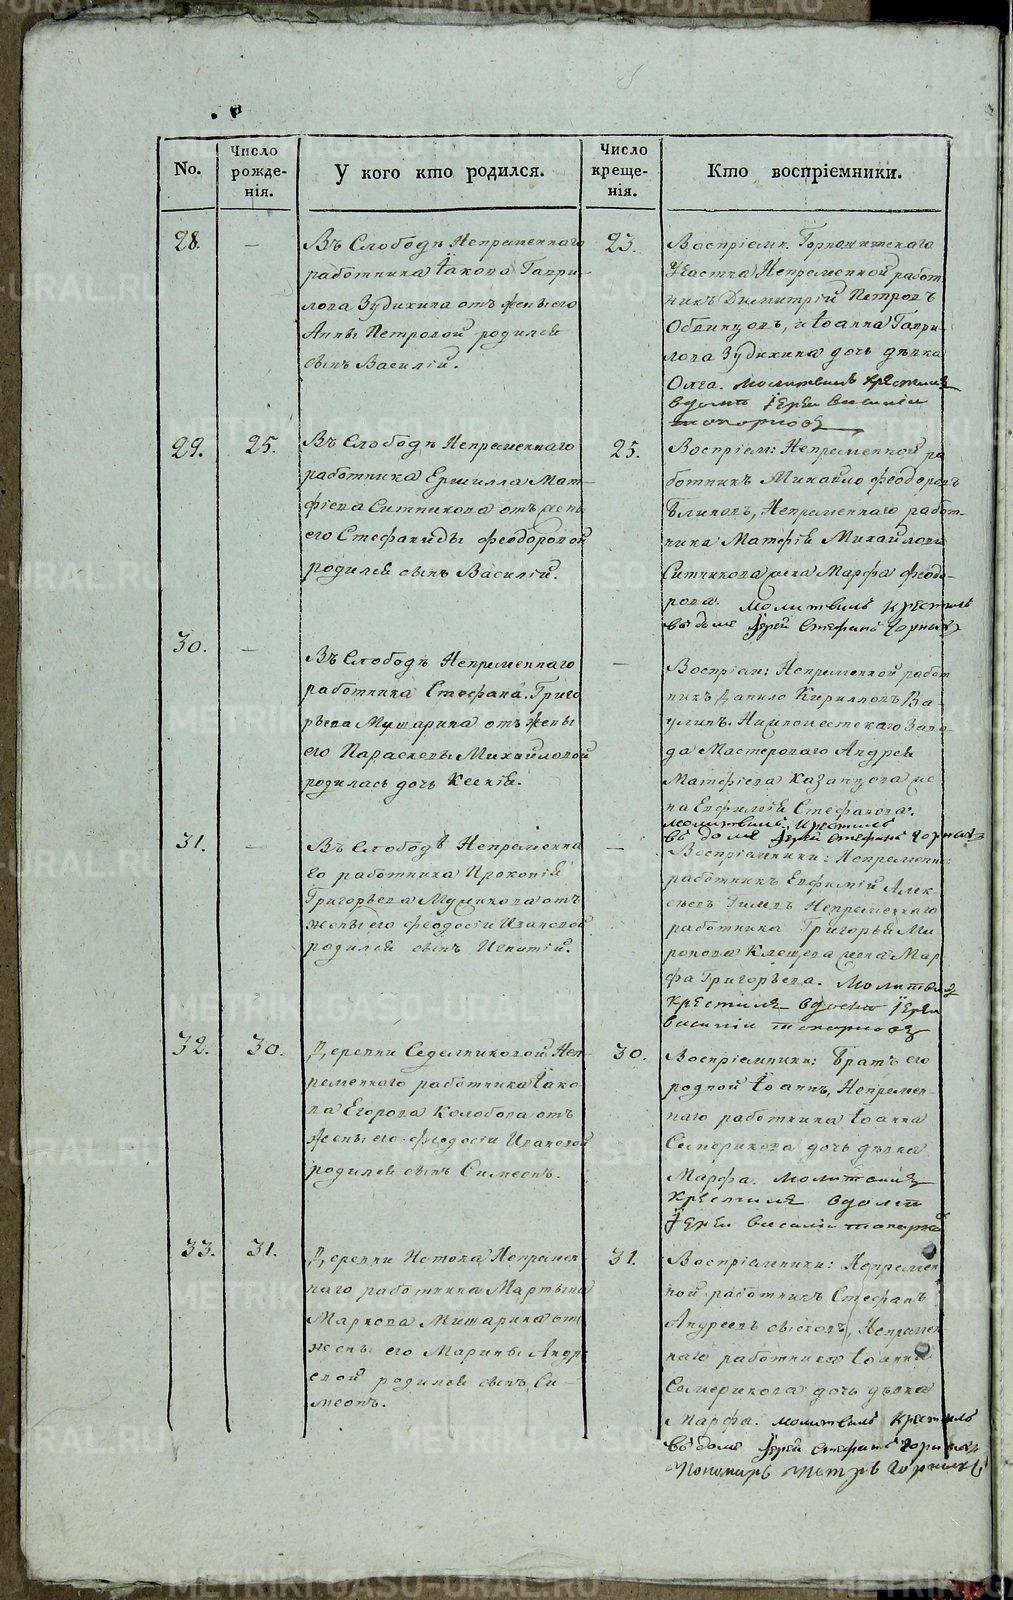 No.
Число рожде-нія.
У кого кто родился.
Число креще-нія.
Кто воспріемники.
28.
—
Въ Слободѣ Непременнаго
работника Іакова Гаври-
лова Зудихина отъ жены его
Анны Петровой родился
сынъ Василій.
23.
Воспріемн. Горнощитскаго
Участка Непременной работ
никъ Димитрій Петровъ
Обвинцовъ, и Іоанна Гаври-
лова Зудихина дочь дѣвка
Олга. молитвилъ крестилъ
в домѣ Іерей Василій
29.
25.
Въ Слободѣ Непременнаго
работника Ермилла Мат-
фіева Ситникова отъ жены
его Стефаниды Феодоровой
родился сынъ Василій.
25.
Воспріем: Непременной ра
ботникъ Михайло Феодоровъ
Блиновъ, Непременнаго работ-
ника Матфія Михайлова
Ситникова жена Марфа Феодо-
рова. молитвилъ крестилъ
въ доме Іерей Стефанъ Черныхъ
30.
—
Въ Слободѣ Непременнаго
работника Стефана Григо
рьева Мишарина отъ жены
его Параскевы Михайловой
родилась дочь Ксенія.
—
Воспріем: Непременной работ
никъ Данило Кирилловъ Ва-
улинъ. Нижноисетскаго Заво-
да Мастероваго Андрея
Матфіева Казанцова же
на Евфимія Стефанова.
молитвилъ крестилъ
въ доме Іерей Стефанъ Черныхъ
31.
—
Въ Слободѣ Непременна
го работника Прокопія
Григорьева отъ
жены его Феодосіи Ивановой
родился сынъ Игнатій.
—
Воспріемники: Непременной
работникъ Евфимій Алек-
сѣевъ Непременнаго
работника Григорья Ми
ронова Клещева жена Мар
фа Григорьева. Молитвилъ
крестилъ в домѣ Іерей
Василій
32.
30.
Деревни Седелниковой Неп-
ременнаго работника Іако-
ва Егорова Колобова отъ
жены его Феодосіи Ивановой
родился сынъ Симеонъ.
30.
Воспріемники: Братъ его
родной Іоаннъ, Непремен-
наго работника Іоанна
Семерикова дочь дѣвка
Марфа. молитвилъ
крестилъ в домѣ
Іерей Василій
33.
31.
Деревни Истока Непремен
наго работника Мартына
Маркова Мишарина отъ
жены его Марины Андре
евой родился сынъ Си-
меонъ.
31.
Воспріемники: Непремен
ной работникъ Стефанъ
Андреевъ Непремен
наго работника Іоанна
Семерикова дочь дѣвка
Марфа. молитвилъ крестилъ
въ доме Іерей Стефанъ Черныхъ
Пономарь Петръ
METRIKI.GASO-URAL.RU